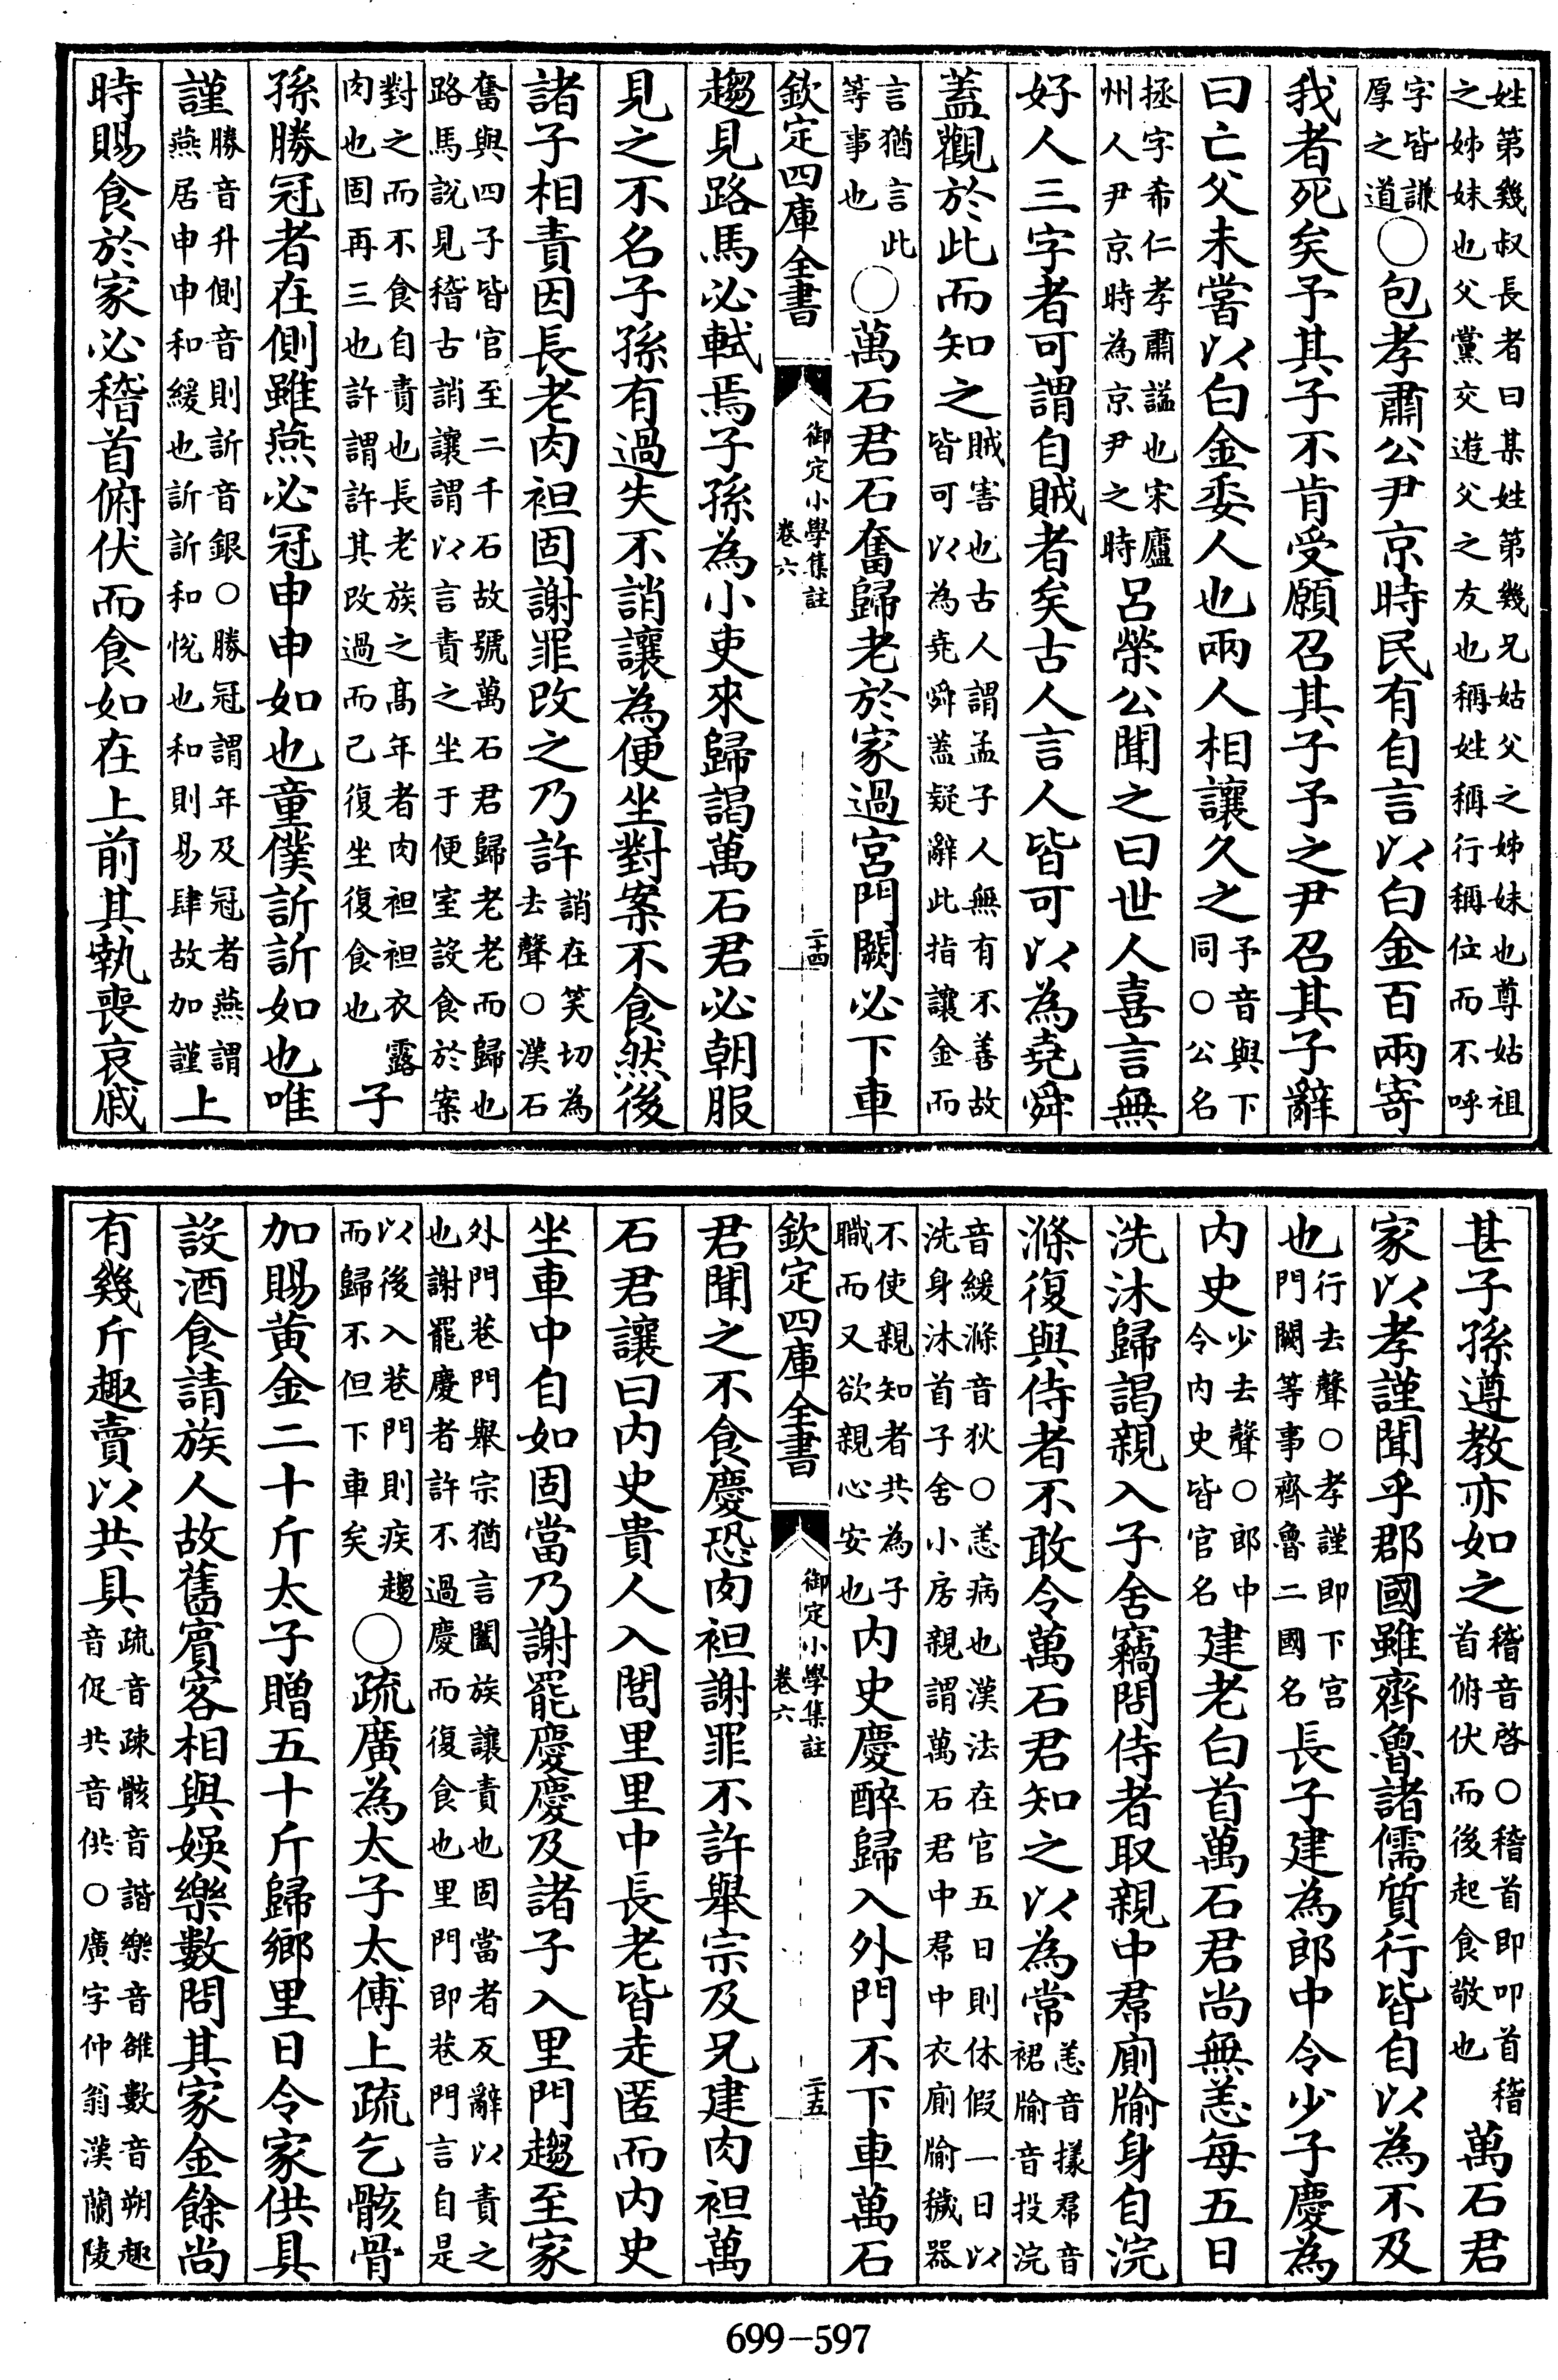 姓第幾叔長者曰某姓第幾兄姑父之姊妹也尊姑祖
之姊妹也父黨交遊父之友也稱姓稱行稱位而不呼
字皆謙厚之道○包孝肅公尹京時民有自言以白金百兩寄
我者死矣予其子不肯受願召其子予之尹召其子辭
曰亡父未嘗以白金委人也兩人相讓久之予音與下同○公名
拯字希仁孝肅諡也宋廬州人尹京時為京尹之時呂榮公聞之曰世人喜言無
好人三字者可謂自賊者矣古人言人皆可以為堯舜
蓋觀於此而知之賊害也古人謂孟子人無有不善故皆可以為堯舜蓋疑辭此指讓金而
言猶言此等事也○萬石君石奮歸老於家過宮門闕必下車
欽定四庫全書
御定小學集註
卷六
二十四
趨見路馬必軾焉子孫為小吏來歸謁萬石君必朝服
見之不名子孫有過失不誚讓為便坐對案不食然後
諸子相責因長老肉袒固謝罪改之乃許誚在笑切為去聲○漢石
奮與四子皆官至二千石故號萬石君歸老老而歸也
路馬說見稽古誚讓謂以言責之坐于便室設食於案
對之而不食自責也長老族之高年者肉袒袒衣露肉也固再三也許謂許其改過而己復坐復食也子
孫勝冠者在側雖燕必冠申申如也童僕訢訢如也唯
謹勝音升側音則訢音銀○勝冠謂年及冠者燕謂燕居申申和緩也訢訢和悅也和則易肆故加謹上
時賜食於家必稽首俯伏而食如在上前其執喪哀戚
甚子孫遵教亦如之稽音啓○稽首即叩首稽首俯伏而後起食敬也萬石君
家以孝謹聞乎郡國雖齊魯諸儒質行皆自以為不及
也行去聲○孝謹即下宮門闕等事齊魯二國名長子建為郎中令少子慶為
内史少去聲○郎中令内史皆官名建老白首萬石君尚無恙每五日
洗沐歸謁親入子舍竊問侍者取親中帬廁牏身自浣
滌復與侍者不敢令萬石君知之以為常恙音㨾帬音裙牏音投浣
音緩滌音狄○恙病也漢法在官五日則休假一日以
洗身沐首子舍小房親謂萬石君中帬中衣廁牏穢器
不使親知者共為子職而又欲親心安也内史慶醉歸入外門不下車萬石
欽定四庫全書
御定小學集註
卷六
二十五
君聞之不食慶恐肉袒謝罪不許舉宗及兄建肉袒萬
石君讓曰内史貴人入閭里里中長老皆走匿而内史
坐車中自如固當乃謝罷慶慶及諸子入里門趨至家
外門巷門舉宗猶言闔族讓責也固當者反辭以責之
也謝罷慶者許不過慶而復食也里門即巷門言自是
以後入巷門則疾趨而歸不但下車矣○疏廣為太子太傅上疏乞骸骨
加賜黄金二十斤太子贈五十斤歸鄉里日令家供具
設酒食請族人故舊賓客相與娛樂數問其家金餘尚
有幾斤趣賣以共具疏音疎骸音諧樂音雒數音朔趣音促共音供○廣字仲翁漢蘭陵
699-597